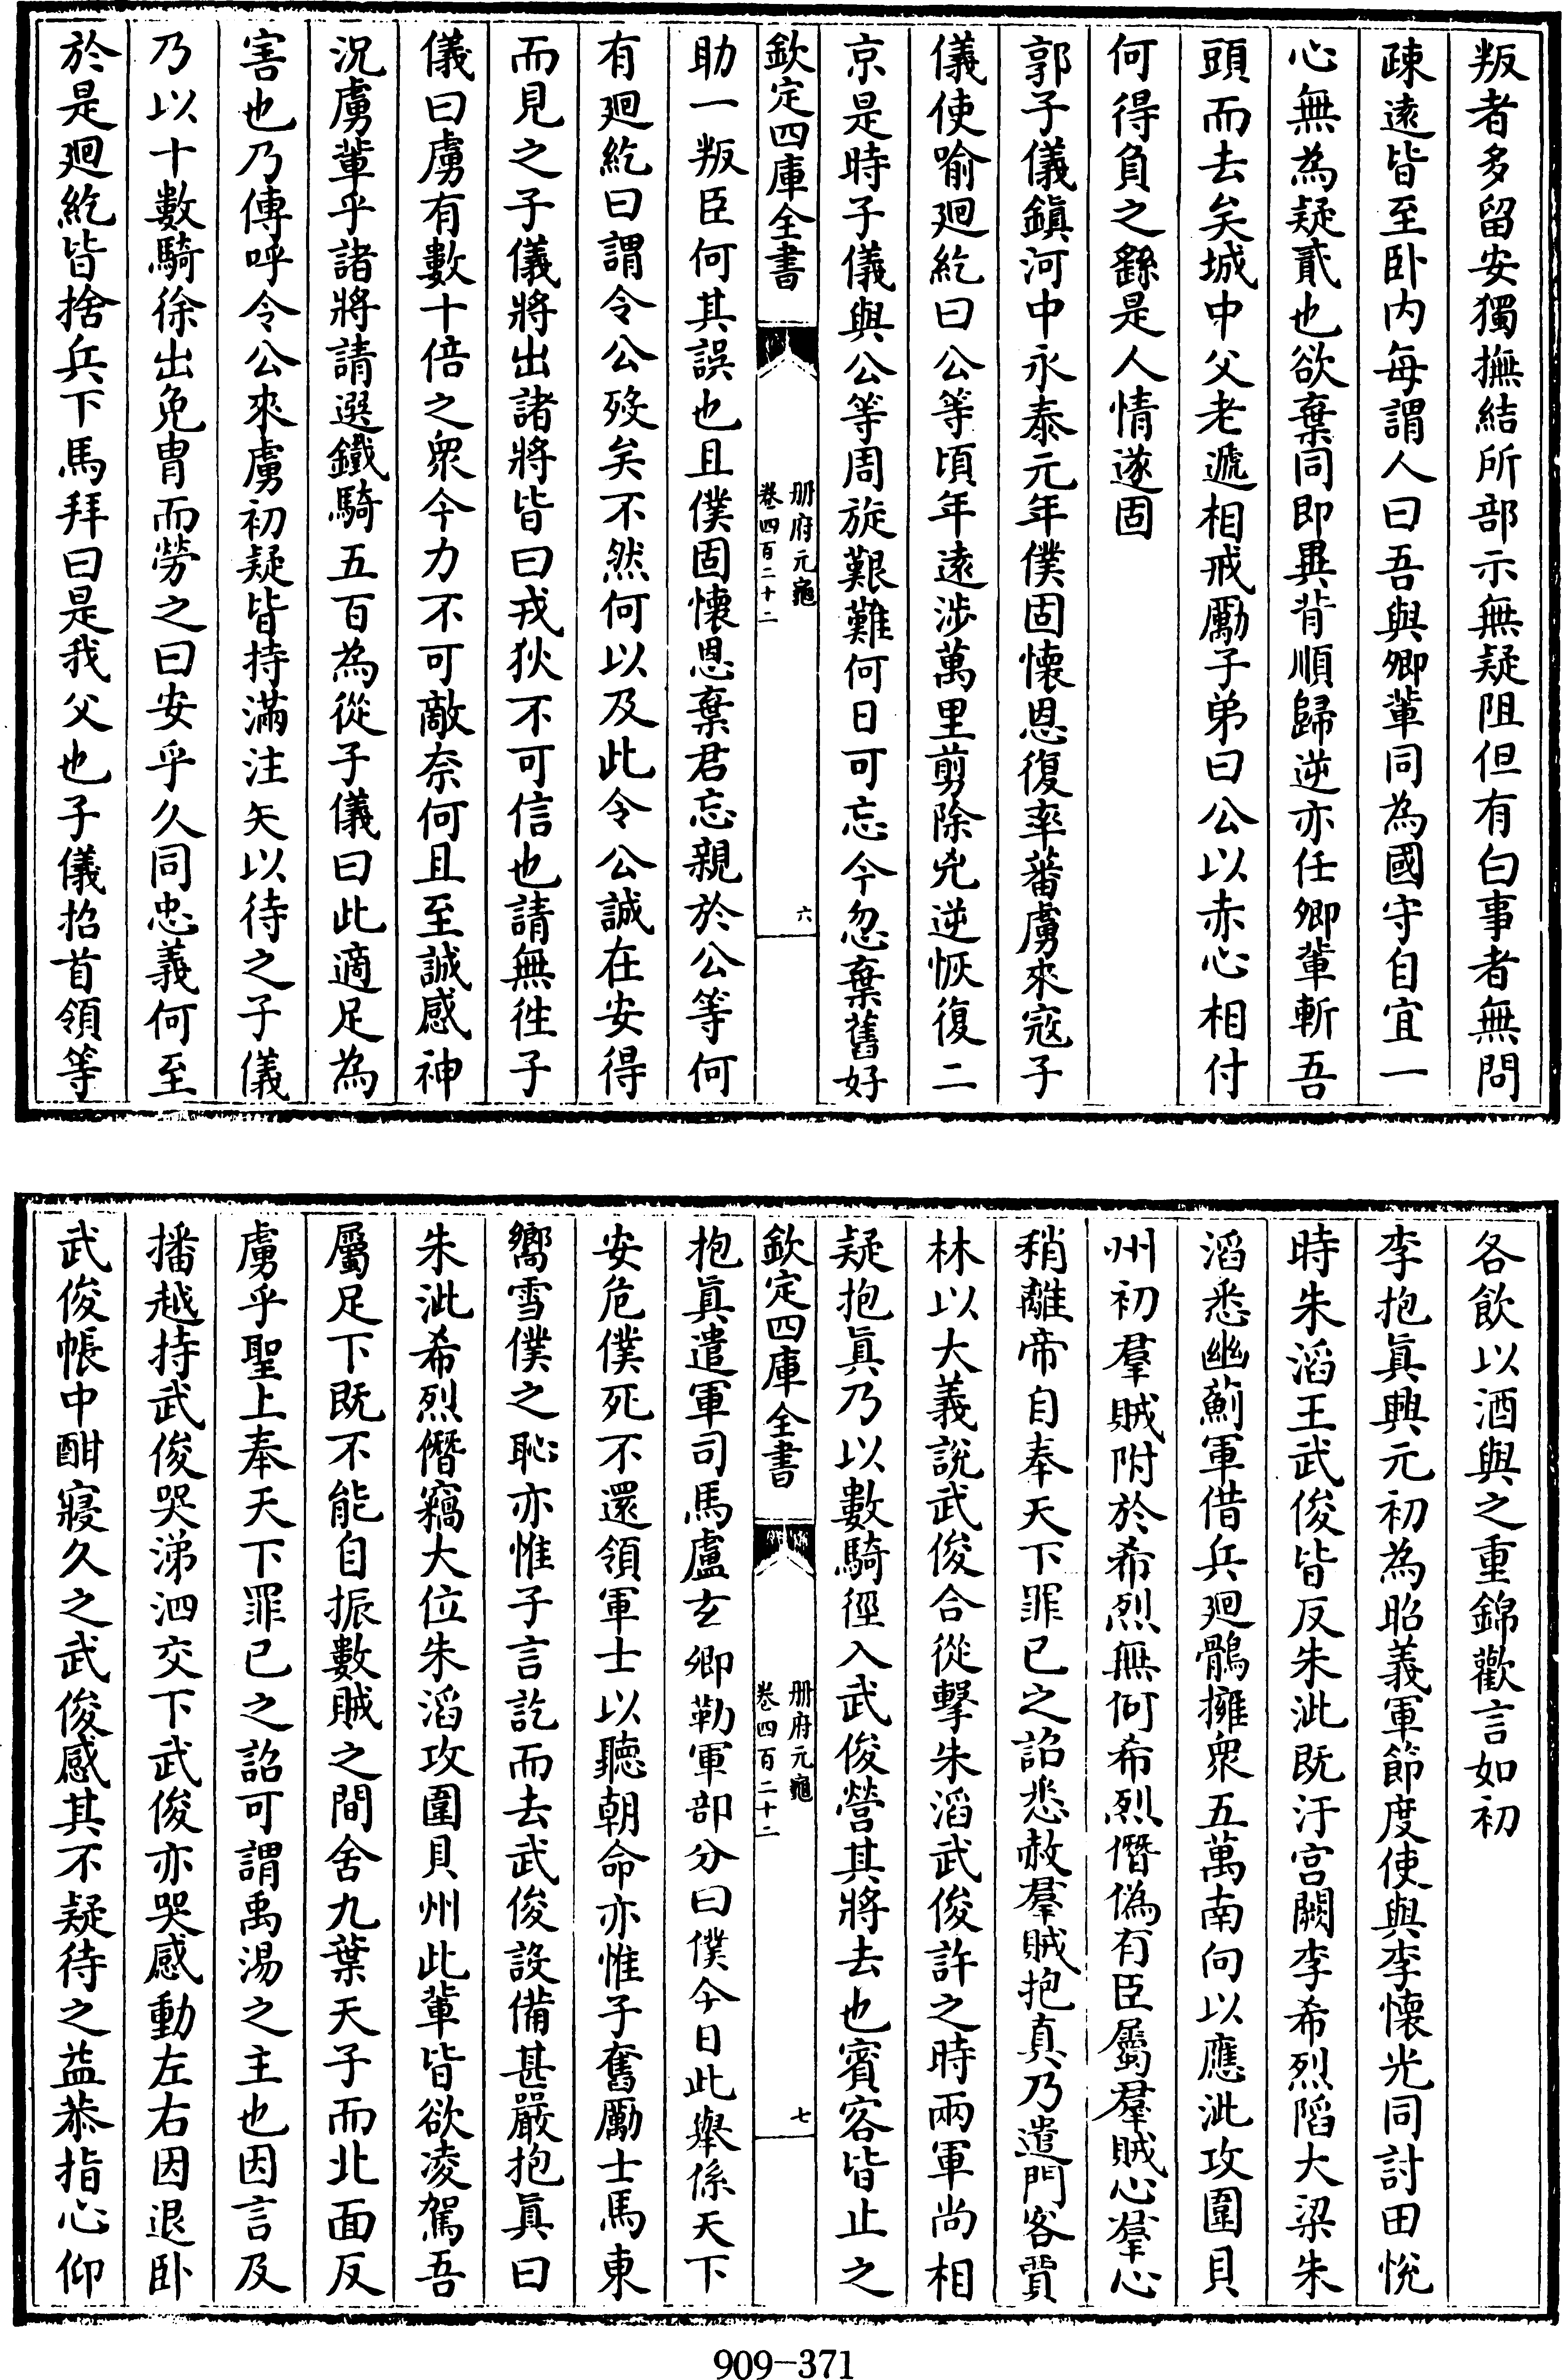 叛者多留安獨撫結所部示無疑阻但有白事者無問
疎遠皆至卧内每謂人曰吾與卿輩同為國守自宜一
心無為疑貳也欲棄同即異背順歸逆亦任卿輩斬吾
頭而去矣城中父老遞相戒勵子弟曰公以赤心相付
何得負之繇是人情遂固
郭子儀鎮河中永泰元年僕固懷恩復率蕃虜來寇子
儀使喻廻紇曰公等頃年遠涉萬里剪除兇逆恢復二
京是時子儀與公等周旋艱難何日可忘今忽棄舊好
欽定四庫全書
册府元龜
卷四百二十二
六
助一叛臣何其誤也且僕固懷恩棄君忘親於公等何
有廻紇曰謂令公殁矣不然何以及此令公誠在安得
而見之子儀將出諸將皆曰戎狄不可信也請無徃子
儀曰虜有數十倍之衆今力不可敵奈何且至誠感神
況虜輩乎諸將請選鐵騎五百為從子儀曰此適足為
害也乃傳呼令公來虜初疑皆持滿注矢以待之子儀
乃以十數騎徐出免冑而勞之曰安乎久同忠義何至
於是廻紇皆捨兵下馬拜曰是我父也子儀招首領等
各飲以酒與之重錦歡言如初
李抱眞興元初為昭義軍節度使與李懷光同討田悅
時朱滔王武俊皆反朱泚既汙宫闕李希烈陷大梁朱
滔悉幽薊軍借兵廻鶻擁衆五萬南向以應泚攻圍貝
州初羣賊附於希烈無何希烈僭偽有臣屬羣賊心羣心
稍離帝自奉天下罪已之詔悉赦羣賊抱真乃遣門客賈
林以大義說武俊合從擊朱滔武俊許之時兩軍尚相
疑抱眞乃以數騎徑入武俊營其將去也賓客皆止之
欽定四庫全書
册府元龜
卷四百二十二
七
抱眞遣軍司馬盧玄卿勒軍部分曰僕今日此舉係天下
安危僕死不還領軍士以聽朝命亦惟子奮勵士馬東
嚮雪僕之恥亦惟子言訖而去武俊設備甚嚴抱眞曰
朱泚希烈僭竊大位朱滔攻圍貝州此輩皆欲凌駕吾
屬足下既不能自振數賊之間舍九葉天子而北面反
虜乎聖上奉天下罪已之詔可謂禹湯之主也因言及
播越持武俊哭涕泗交下武俊亦哭感動左右因退卧
武俊帳中酣寝久之武俊感其不疑待之益恭指心仰
909-371